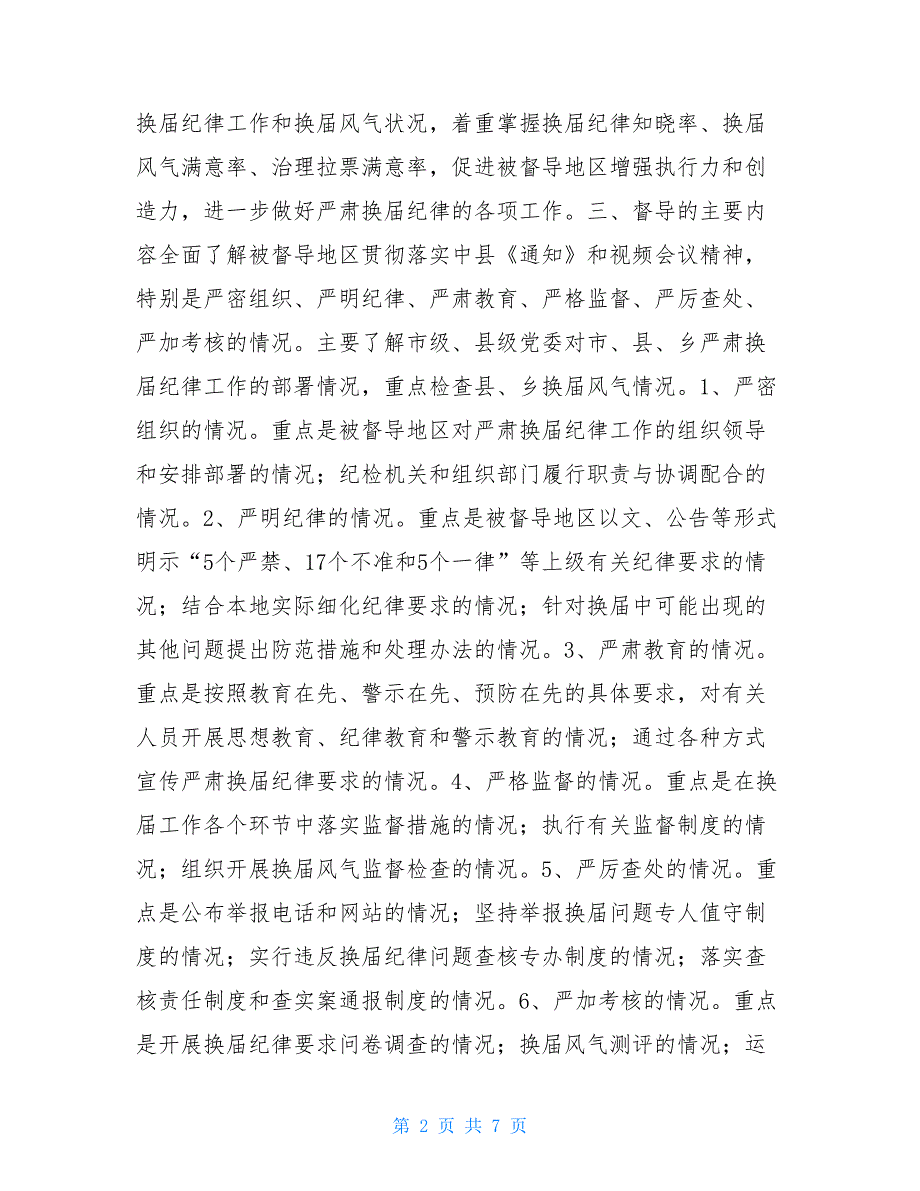 换届纪律工作和换届风气状况，着重掌握换届纪律知晓率、换届
风气满意率、治理拉票满意率，促进被督导地区增强执行力和创
造力，进一步做好严肃换届纪律的各项工作。三、督导的主要内
容全面了解被督导地区贯彻落实中县《通知》和视频会议精神，
特别是严密组织、严明纪律、严肃教育、严格监督、严厉查处、
严加考核的情况。主要了解市级、县级党委对市、县、乡严肃换
届纪律工作的部署情况，重点检查县、乡换届风气情况。1、严密
组织的情况。重点是被督导地区对严肃换届纪律工作的组织领导
和安排部署的情况；纪检机关和组织部门履行职责与协调配合的
情况。2、严明纪律的情况。重点是被督导地区以文、公告等形式
明示“5个严禁、17个不准和5个一律”等上级有关纪律要求的情
况；结合本地实际细化纪律要求的情况；针对换届中可能出现的
其他问题提出防范措施和处理办法的情况。3、严肃教育的情况。
重点是按照教育在先、警示在先、预防在先的具体要求，对有关
人员开展思想教育、纪律教育和警示教育的情况；通过各种方式
宣传严肃换届纪律要求的情况。4、严格监督的情况。重点是在换
届工作各个环节中落实监督措施的情况；执行有关监督制度的情
况；组织开展换届风气监督检查的情况。5、严厉查处的情况。重
点是公布举报电话和网站的情况；坚持举报换届问题专人值守制
度的情况；实行违反换届纪律问题查核专办制度的情况；落实查
核责任制度和查实案通报制度的情况。6、严加考核的情况。重点
是开展换届纪律要求问卷调查的情况；换届风气测评的情况；运
第 2 页 共 7 页